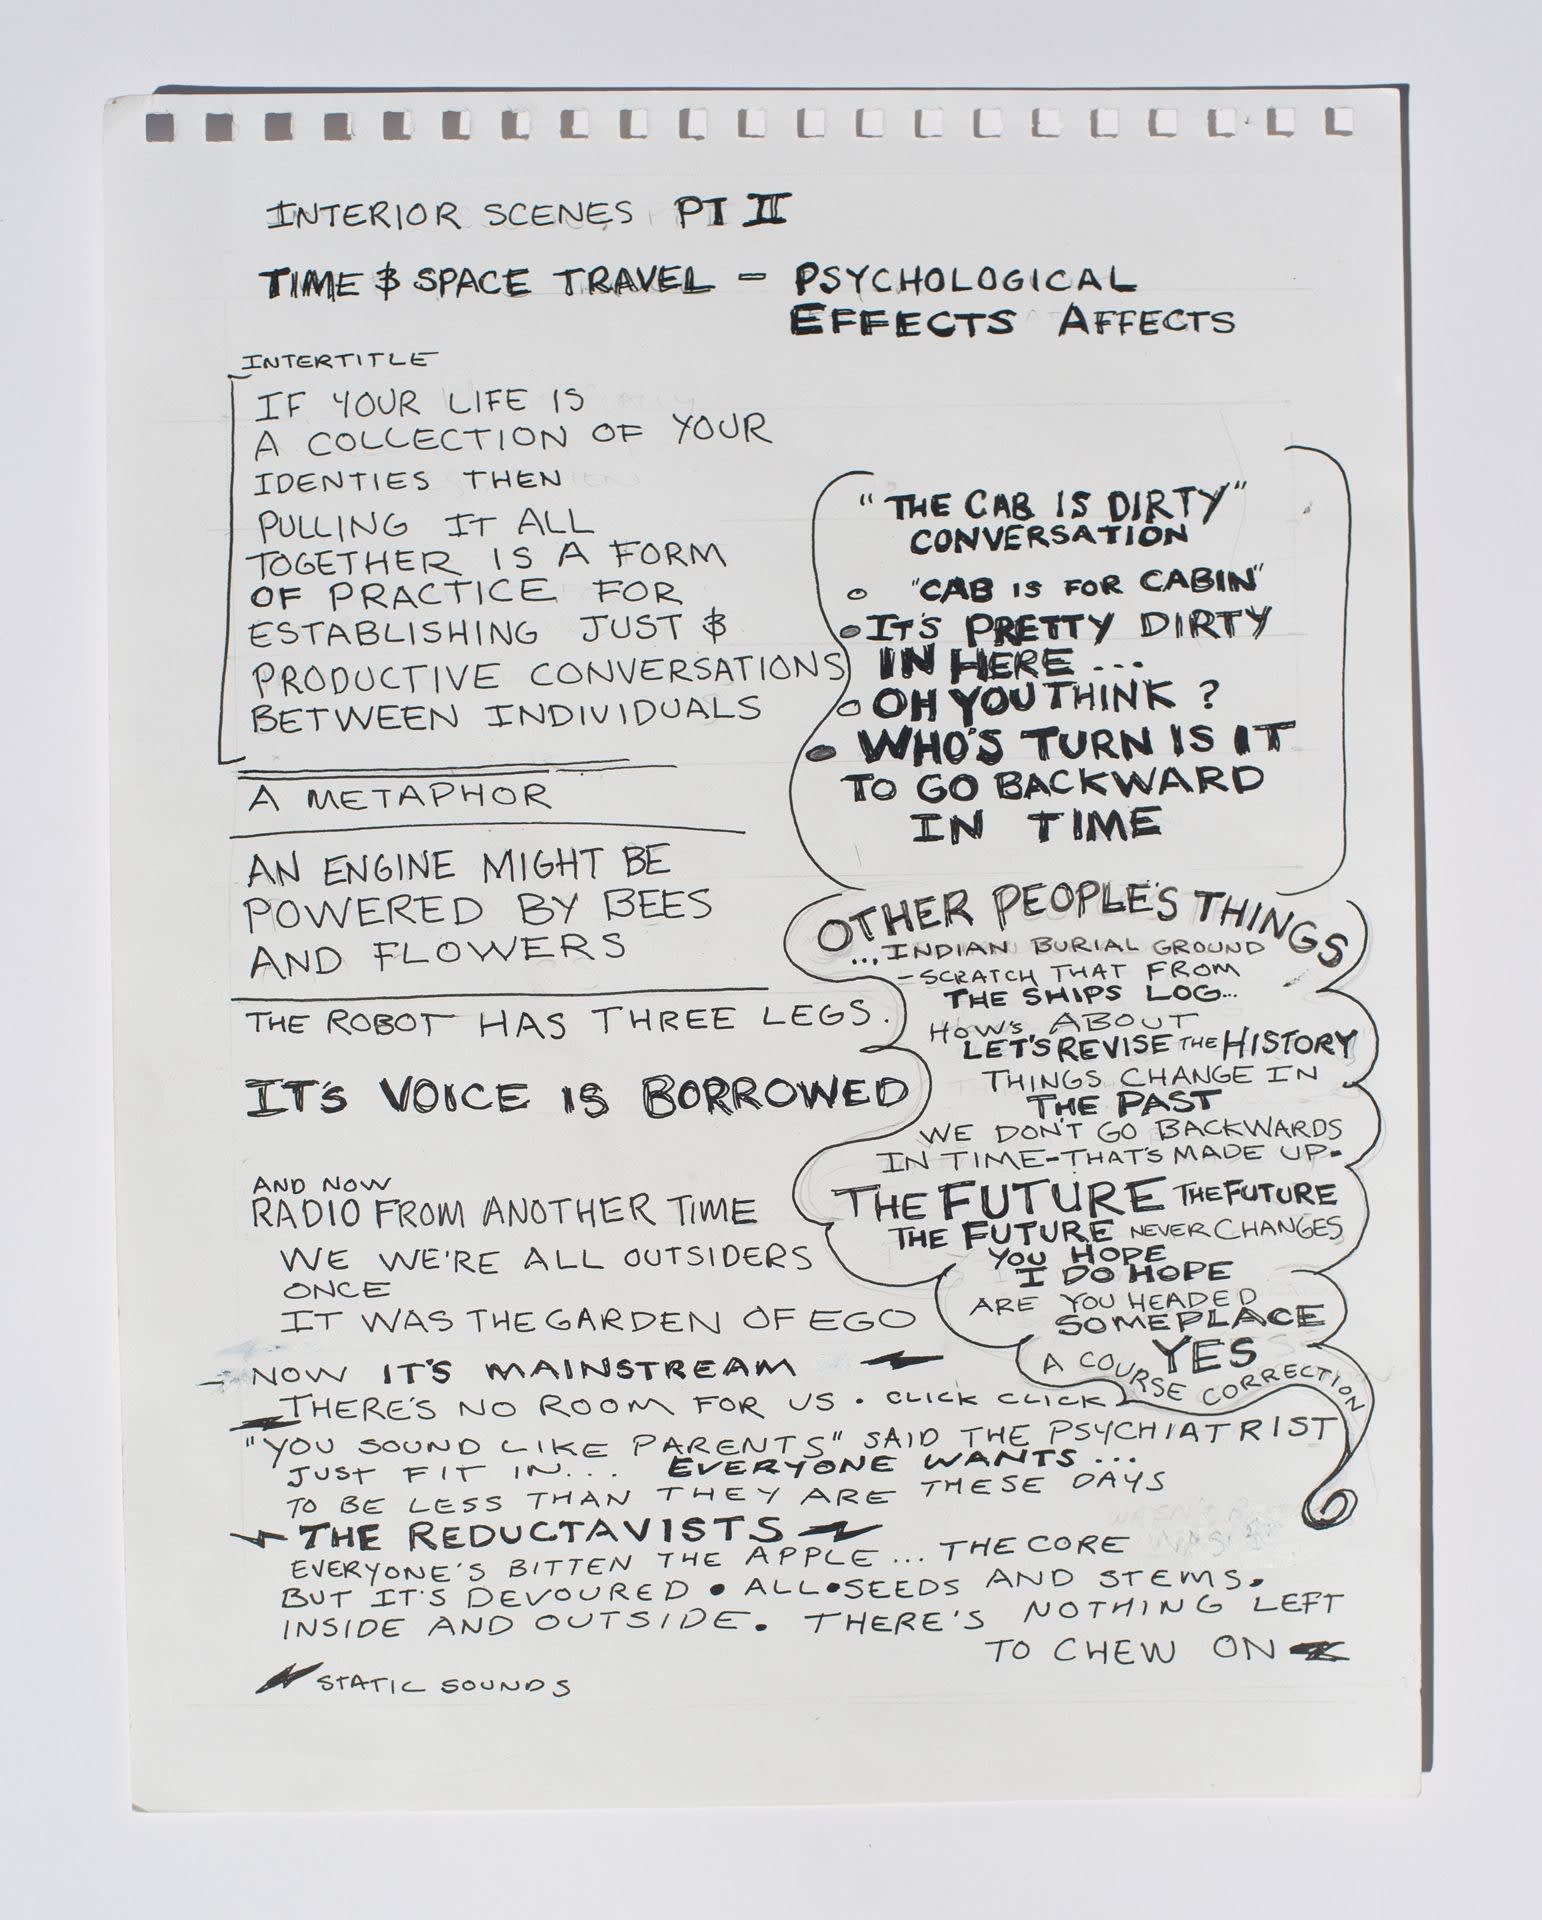 INTERIOR SCENES PT II
TIME & SPACE TRAVEL - PSYCHOLOGICAL
EFFECTS AFFECTS
INTERTITLE
IF YOUR LIFE IS
A COLLECTION OF YOUR
IDENTIES THEN
PULLING IT ALL
TOGETHER IS A FORM
OF PRACTICE FOR
ESTABLISHING JUST &
PRODUCTIVE CONVERSATIONS
BETWEEN INDIVIDUALS
A METAPHOR
AN ENGINE MIGHT BE
POWERED BY BEES
AND FLOWERS
THE ROBOT HAS THREE LEGS.
IT'S VOICE IS BORROWED
"THE CAB IS DIRTY"
CONVERSATION
"CAB IS FOR CABIN"
IT'S PRETTY DIRTY
IN HERE ...
OH YOU THINK ?
WHO'S TURN IS IT
TO GO BACKWARD
IN TIME
OTHER PEOPLE'S THINGS
...INDIAN BURIAL GROUND
- SCRATCH THAT FROM
THE SHIPS LOG...
HOW'S ABOUT
LET'S REVISE THE HISTORY
THINGS CHANGE IN
THE PAST
WE DON'T GO BACKWARDS
IN TIME-THAT'S MADE UP.
THE FUTURE THE FUTURE
THE FUTURE NEVER CHANGES
YOU HOPE
I DO HOPE
ARE YOU HEADED
SOMEPLACE
YES
A COURSE CORRECTION
AND NOW
RADIO FROM ANOTHER TIME
WE WE'RE ALL OUTSIDERS
ONCE
IT WAS THE GARDEN OF EGO
- NOW IT'S MAINSTREAM
THERE'S NO ROOM FOR US . CLICK CLICK
"YOU SOUND LIKE PARENTS" SAID THE PSYCHIATRIST
JUST FIT IN... EVERYONE WANTS ...
TO BE LESS THAN THEY ARE THESE DAYS
THE REDUCTAVISTS
EVERYONE'S BITTEN THE APPLE ... THE CORE
BUT IT'S DEVOURED • ALL•SEEDS AND STEMS.
INSIDE AND OUTSIDE. THERE'S NOTHING LEFT
TO CHEW ON
STATIC SOUNDS